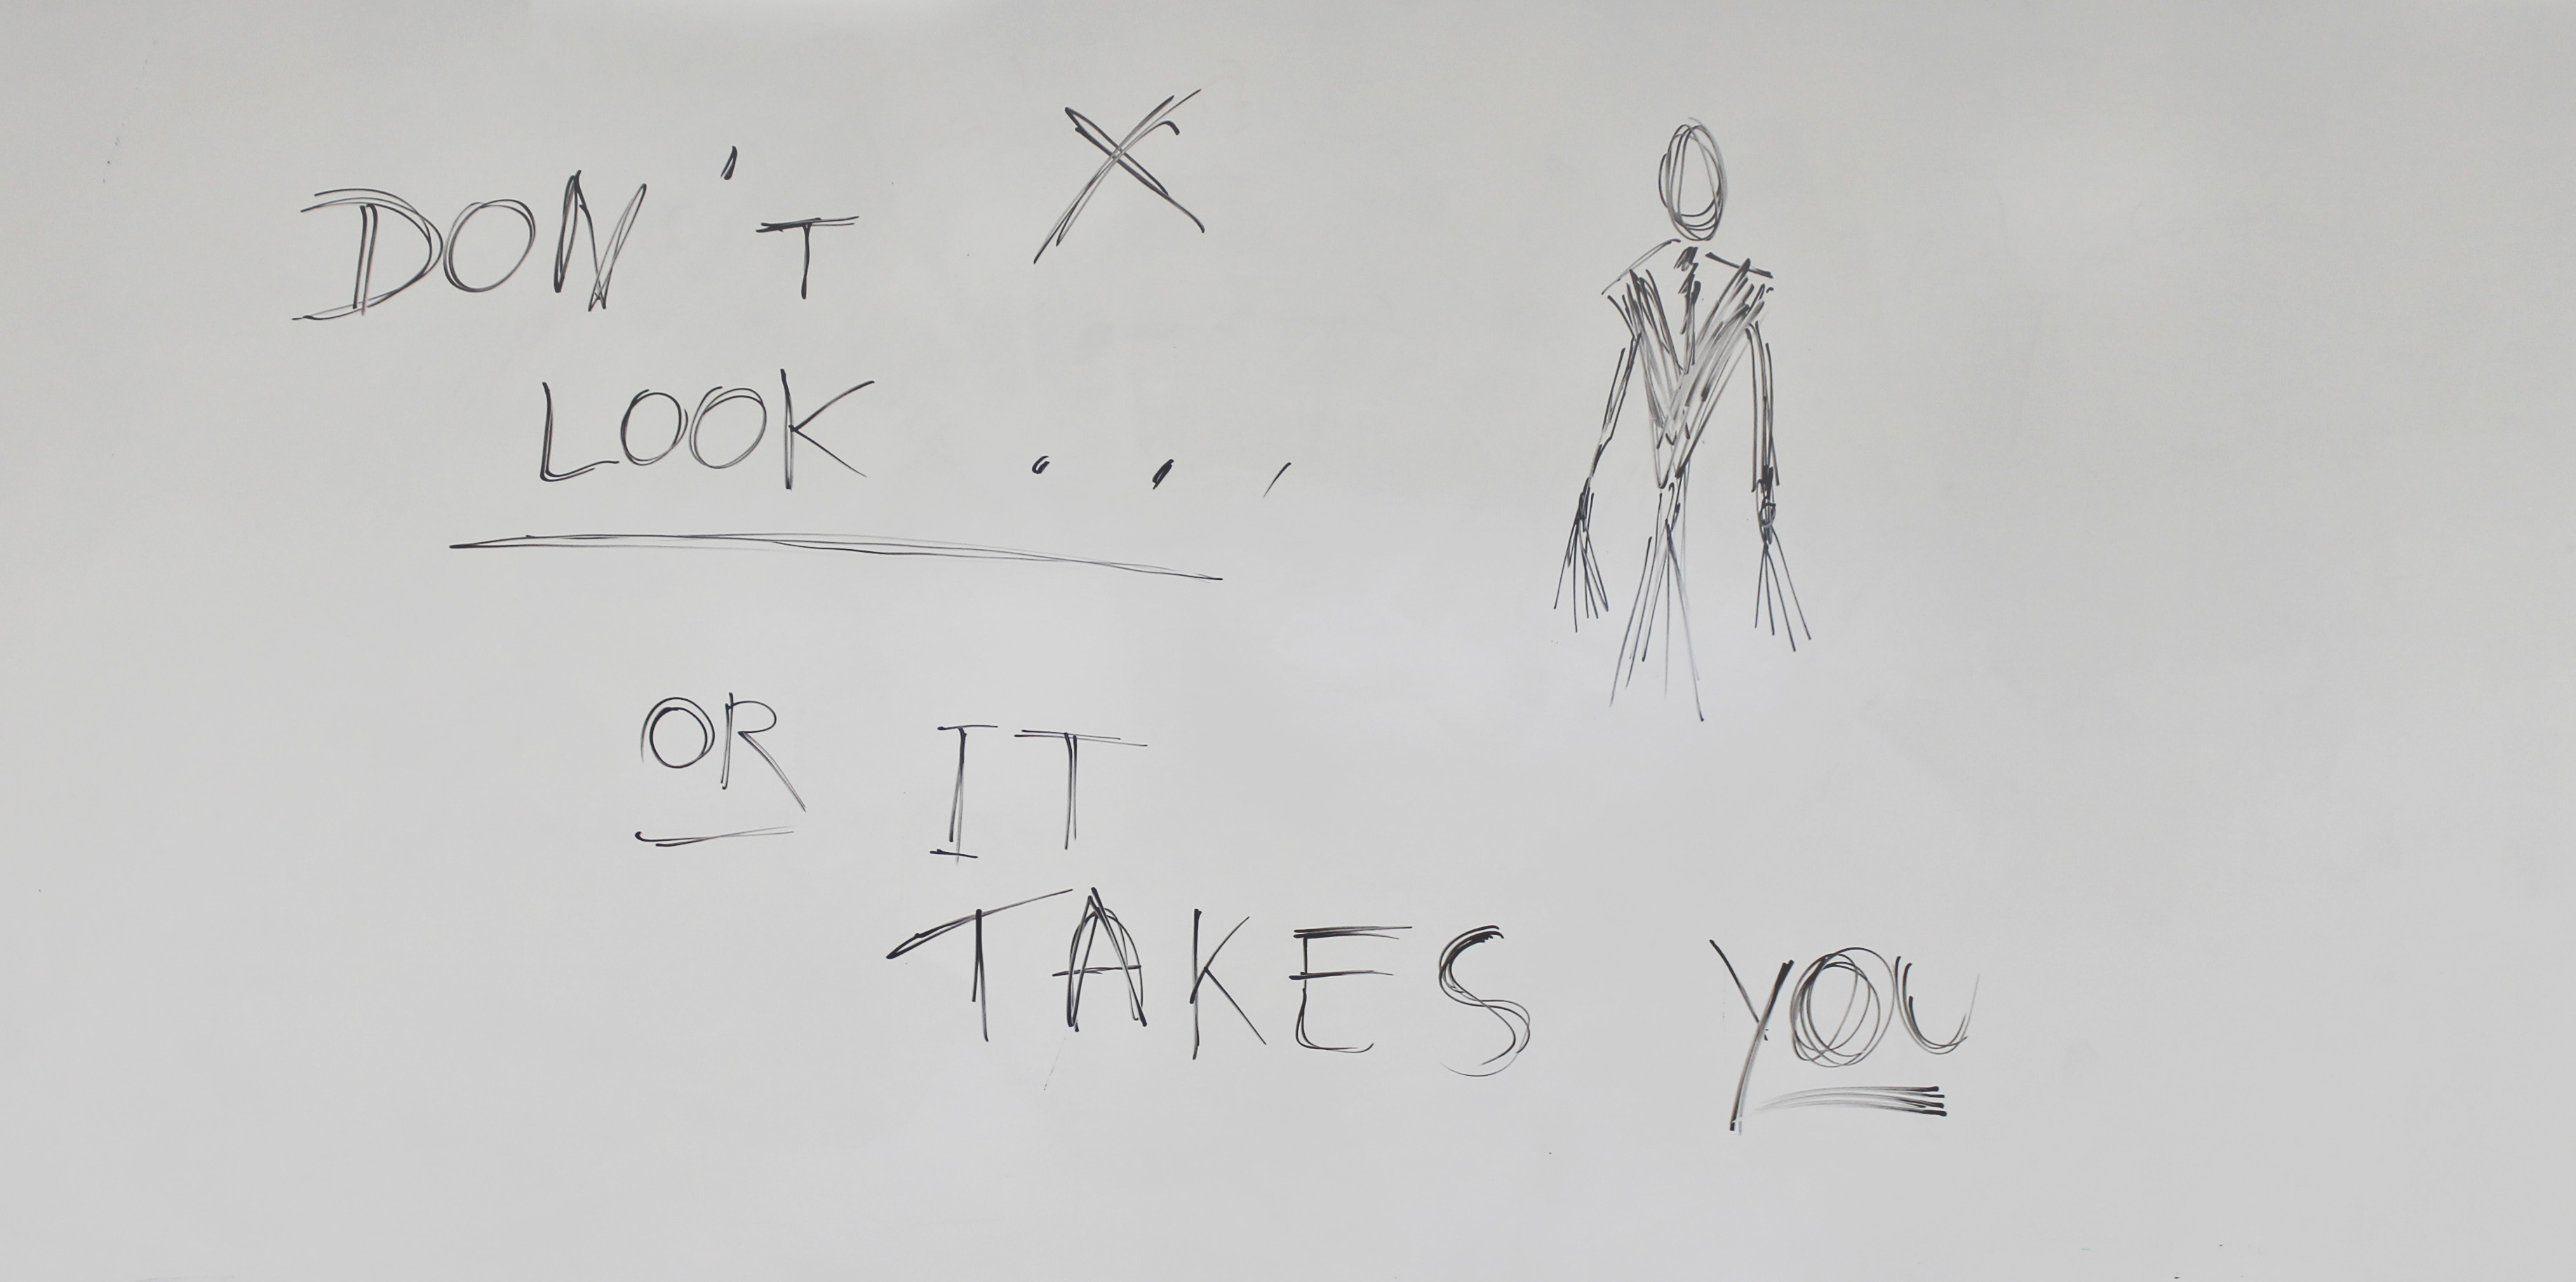 DON'T X
LOOK...
OR IT
TAKES YOU